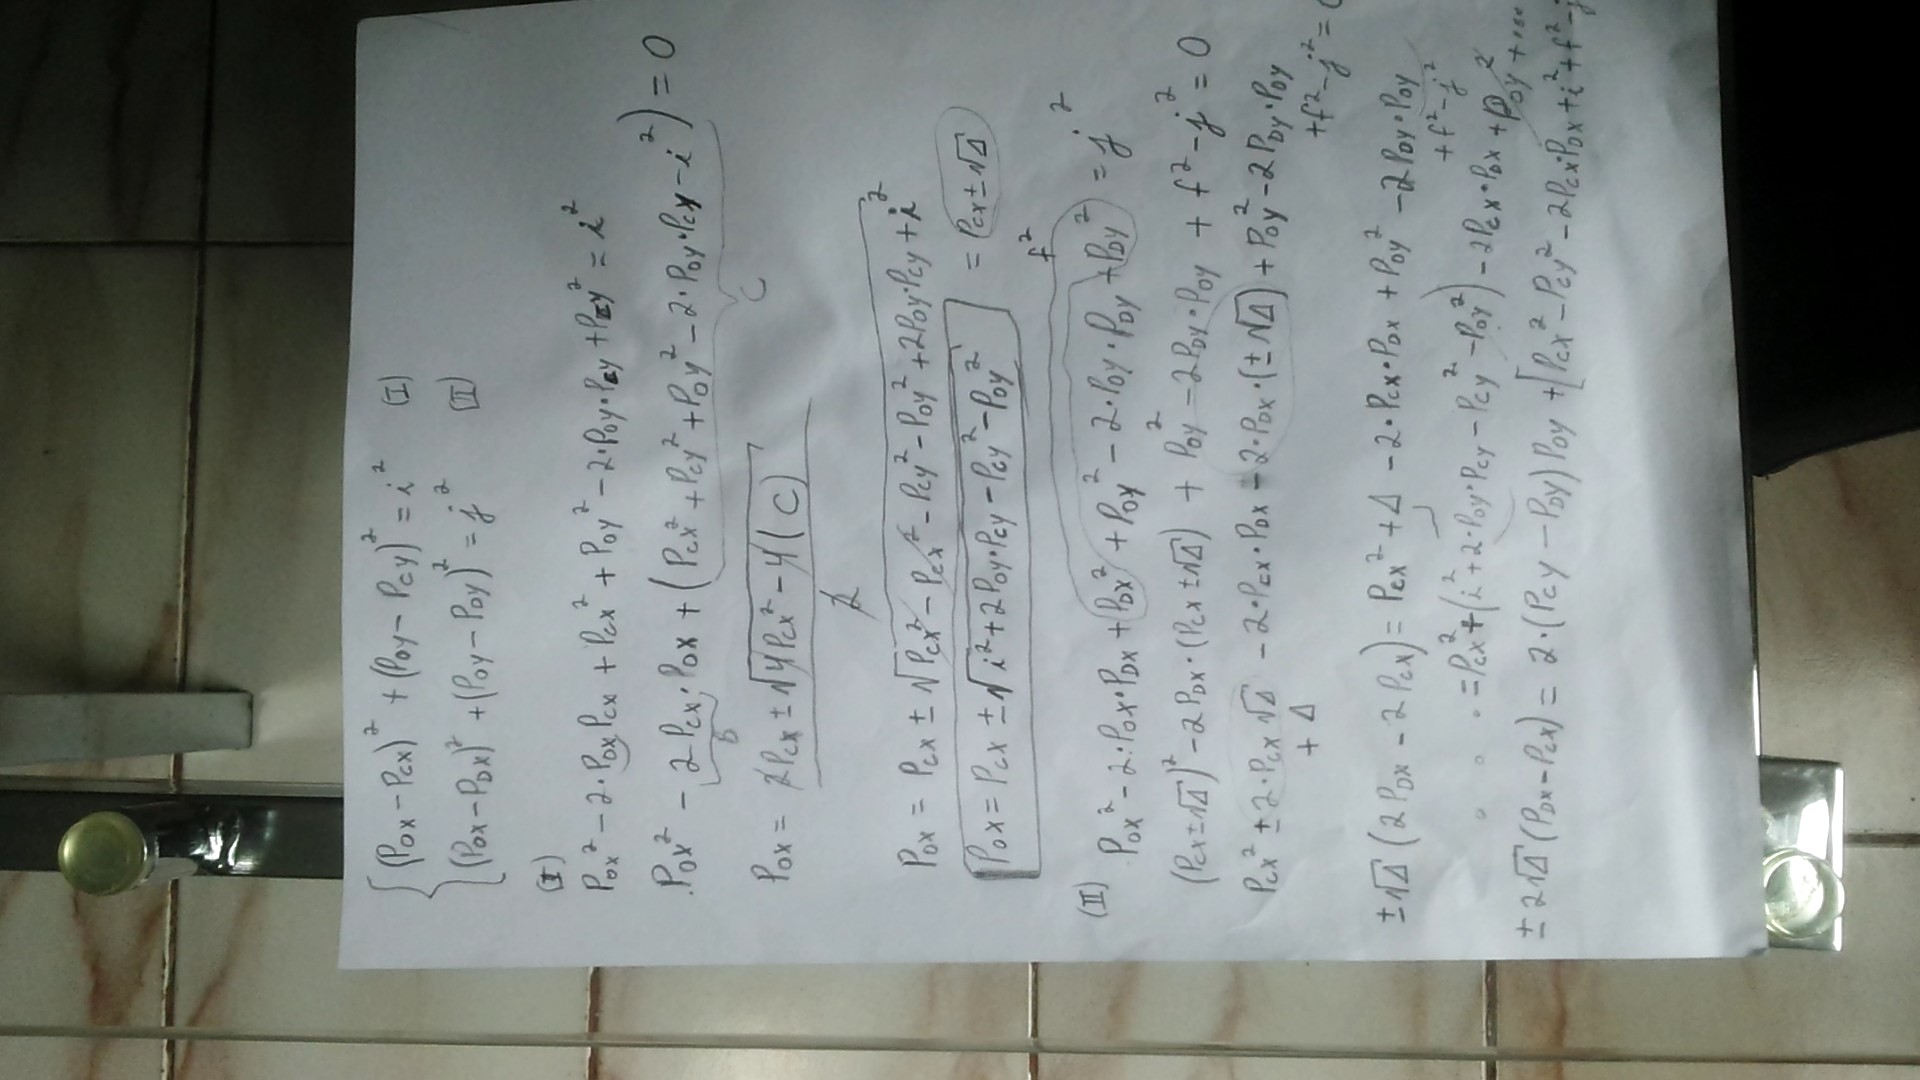 (Pox − Pcx)² + (Poy − Pcy)² = i² (I)
(Pox − PDx)² + (Poy − PDy)² = j² (II)
(I)
Pox² − 2·Pox Pcx + Pcx² + Poy² − 2·Poy·Pcy + Pcy² = i²
Pox² − 2Pcx·Pox + (Pcx² + Pcy² + Poy² − 2·Poy·Pcy − i²) = 0
b C
Pox = 2Pcx ± √4Pcx² − 4(C)
2
Pox = Pcx ± √Pcx² − Pcx² − Pcy² − Poy² + 2Poy·Pcy + i²
Pox = Pcx ± √i² + 2Poy·Pcy − Pcy² − Poy² = Pcx ± √Δ
f²
(II) Pox² − 2·Pox·PDx + PDx² + Poy² − 2·Poy·PDy + PDy² = j²
(Pcx ± √Δ)² − 2PDx·(Pcx ± √Δ) + Poy² − 2PDy·Poy + f² − j² = 0
Pcx² ± 2·Pcx √Δ − 2·Pcx·PDx − 2·PDx·(± √Δ) + Poy² − 2PDy·Poy
+ Δ + f² − j² = 0
± √Δ (2PDx − 2Pcx) = Pcx² + Δ − 2·Pcx·PDx + Poy² − 2PDy·Poy
+ f² − j²
. . . = Pcx² + (i² + 2·Poy·Pcy − Pcy² − Poy²) − 2Pcx·PDx + Poy² + ...
± 2√Δ (PDx − Pcx) = 2·(Pcy − PDy) Poy + [Pcx² − Pcy² − 2Pcx·PDx + i² + f² − j